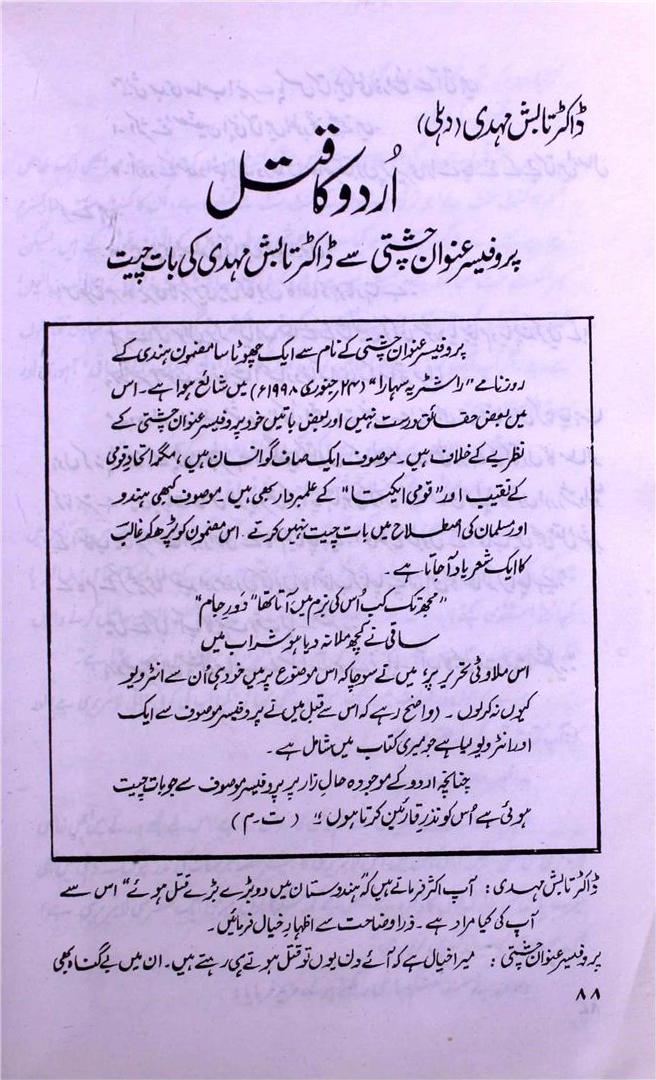 ڈاکٹر تابش مہدی (دہلی)
اُردو کا قتل
پروفیسر عنوان چشتی سے ڈاکٹر تابش مہدی کی بات چیت
پروفیسر عنوان چشتی کے نام سے ایک چھوٹا سا مضمون ہندی کے
روزنامے "راشٹریہ سہارا" (۲۴ جنوری ۱۹۹۸ء) میں شائع ہوا ہے۔ اس
میں بعض حقائق درست نہیں اور بعض باتیں خود پروفیسر عنوان چشتی کے
نظریے کے خلاف ہیں۔ موصوف ایک صاف گو انسان ہیں، مگر اتحاد قومی
کے نقیب اور "قومی ایکتا" کے علمبردار بھی ہیں۔ موصوف کبھی ہندو
اور مسلمان کی اصطلاح میں بات چیت نہیں کرتے۔ اس مضمون کو پڑھ کر غالبؔ
کا ایک شعر یاد آجاتا ہے۔
"مجھ تک کب اُس کی بزم میں آتا تھا "دَورِ جام"
ساقی نے کچھ ملا نہ دیا ہو شراب میں
اس ملاوٹی تحریر پر میں نے سوچا کہ اس موضوع پر میں خود ہی اُن سے انٹرویو
کیوں نہ کرلوں۔ (واضح رہے کہ اس سے قبل میں نے پروفیسر موصوف سے ایک
اور انٹرویو لیا ہے جو میری کتاب میں شامل ہے۔
چنانچہ اردو کے موجودہ حال زار پر پروفیسر موصوف سے جو بات چیت
ہوئی ہے اُس کو نذرِ قارئین کرتا ہوں" (ت۔م)
ڈاکٹر تابش مہدی: آپ اکثر فرماتے ہیں کہ "ہندوستان میں دو بڑے بڑے قتل ہوئے" اس سے
آپ کی کیا مراد ہے۔ ذرا وضاحت سے اظہارِ خیال فرمائیں۔
پروفیسر عنوان چشتی: میرا خیال ہے کہ آئے دن یوں تو قتل ہوتے ہی رہتے ہیں۔ ان میں بے گناہ بھی
۸۸